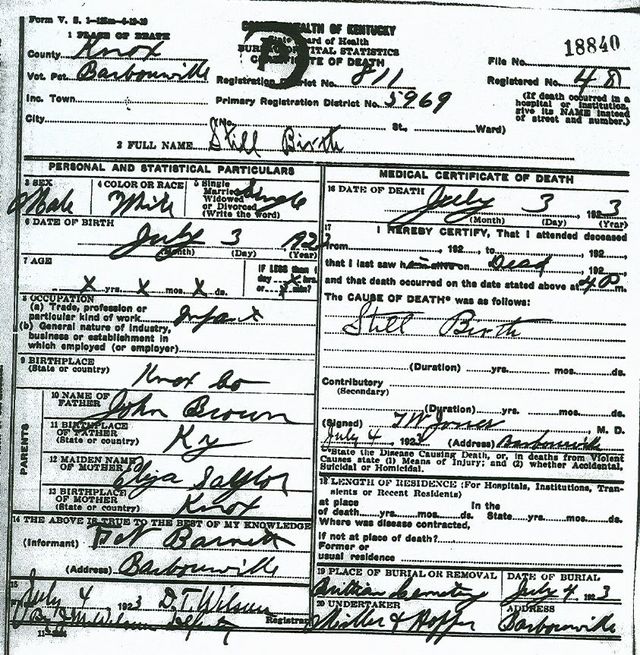 Form V. S. 1
COMMONWEALTH OF KENTUCKY
State Board of Health
BUREAU OF VITAL STATISTICS
CERTIFICATE OF DEATH
18840
1 PLACE OF DEATH
County Knox
File No.
Vot. Pct. Barbourville
Registration District No. 811
Registered No. 48
Inc. Town
Primary Registration District No. 5969
(If death occurred in a hospital or institution, give its NAME instead of street and number.)
City
(No. St., Ward)
2 FULL NAME Still Birth
PERSONAL AND STATISTICAL PARTICULARS
3 SEX Male
4 COLOR OR RACE
5 Single Married Widowed or Divorced (Write the word) Single
6 DATE OF BIRTH
July 3 1923
(Month) (Day) (Year)
7 AGE
X yrs. X mos. X ds.
IF LESS than 1 day X hrs. or X min.?
8 OCCUPATION
(a) Trade, profession or particular kind of work Infant
(b) General nature of industry, business or establishment in which employed (or employer)
9 BIRTHPLACE
(State or country) Knox Co
PARENTS
10 NAME OF FATHER John Brown
11 BIRTHPLACE OF FATHER (State or country) Ky
12 MAIDEN NAME OF MOTHER Saylor
13 BIRTHPLACE OF MOTHER (State or country) Knox
14 THE ABOVE IS TRUE TO THE BEST OF MY KNOWLEDGE
(Informant) Barnett
(Address) Barbourville
15
July 4 1923 D.T. Wilson
Registrar
MEDICAL CERTIFICATE OF DEATH
16 DATE OF DEATH
July 3 1923
(Month) (Day) (Year)
17 I HEREBY CERTIFY, That I attended deceased
from , 192 , to , 192 ,
that I last saw h alive on Dead , 192 ,
and that death occurred on the date stated above at 4 P m.
The CAUSE OF DEATH* was as follows:
Still Birth
(Duration) yrs. mos. ds.
Contributory
(Secondary)
(Duration) yrs. mos. ds.
(Signed) Jones , M. D.
July 4 , 192 (Address) Barbourville
*State the Disease Causing Death, or, in deaths from Violent Causes state (1) Means of Injury; and (2) whether Accidental, Suicidal or Homicidal.
18 LENGTH OF RESIDENCE (For Hospitals, Institutions, Transients or Recent Residents)
at place of death yrs. mos. ds. In the State yrs. mos. ds.
Where was disease contracted,
if not at place of death?
Former or usual residence
19 PLACE OF BURIAL OR REMOVAL
Cemetery
DATE OF BURIAL
July 4 1923
20 UNDERTAKER
Miller & Hopper
ADDRESS
Barbourville